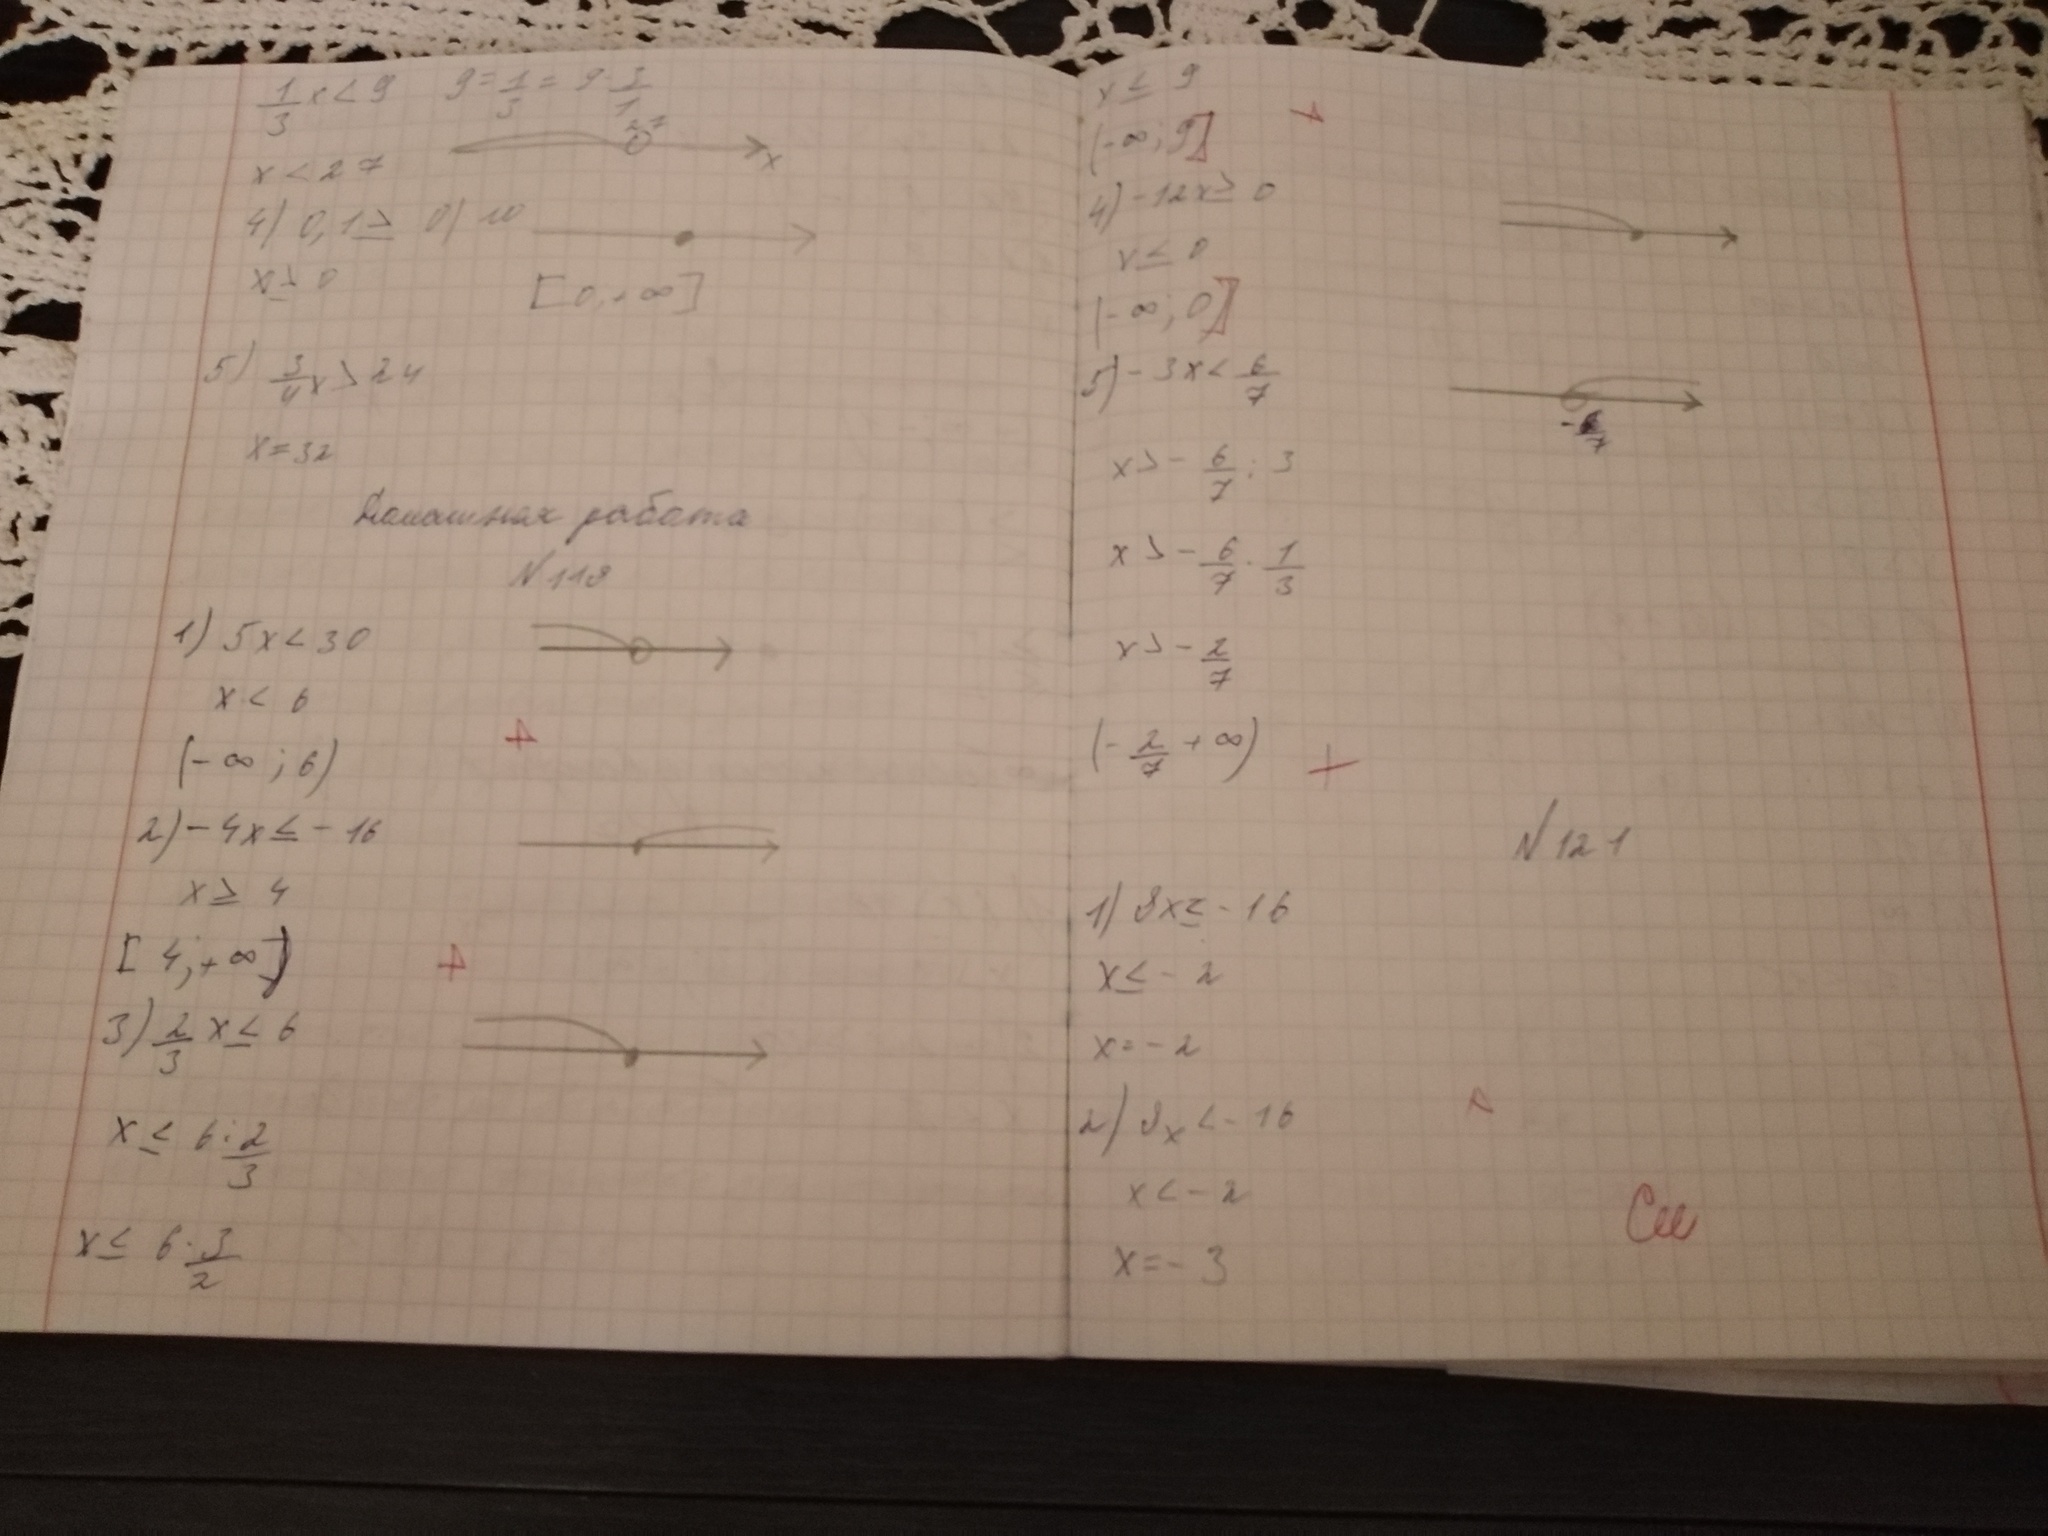 1/3 x < 9   9 = 1/3 = 9 · 3/1
27
x < 27
x
4) 0,1 ≥ 0) 10
x ≥ 0
[0, +∞]
5) 3/4 x > 24
x = 32
Домашняя работа
N 118
1) 5x < 30
x < 6
(-∞; 6)
+
2) -4x ≤ -16
x ≥ 4
[4; +∞)
+
3) 2/3 x ≤ 6
x ≤ 6 : 2/3
x ≤ 6 · 3/2
x ≤ 9
(-∞; 9]
+
4) -12x ≥ 0
x ≤ 0
(-∞; 0]
5) -3x < 6/7
x > - 6/7 : 3
x > - 6/7 · 1/3
x > - 2/7
(- 2/7 + ∞)
+
N 121
1) 8x ≤ -16
x ≤ -2
x = -2
2) 8x < -16
x < -2
x = -3
См